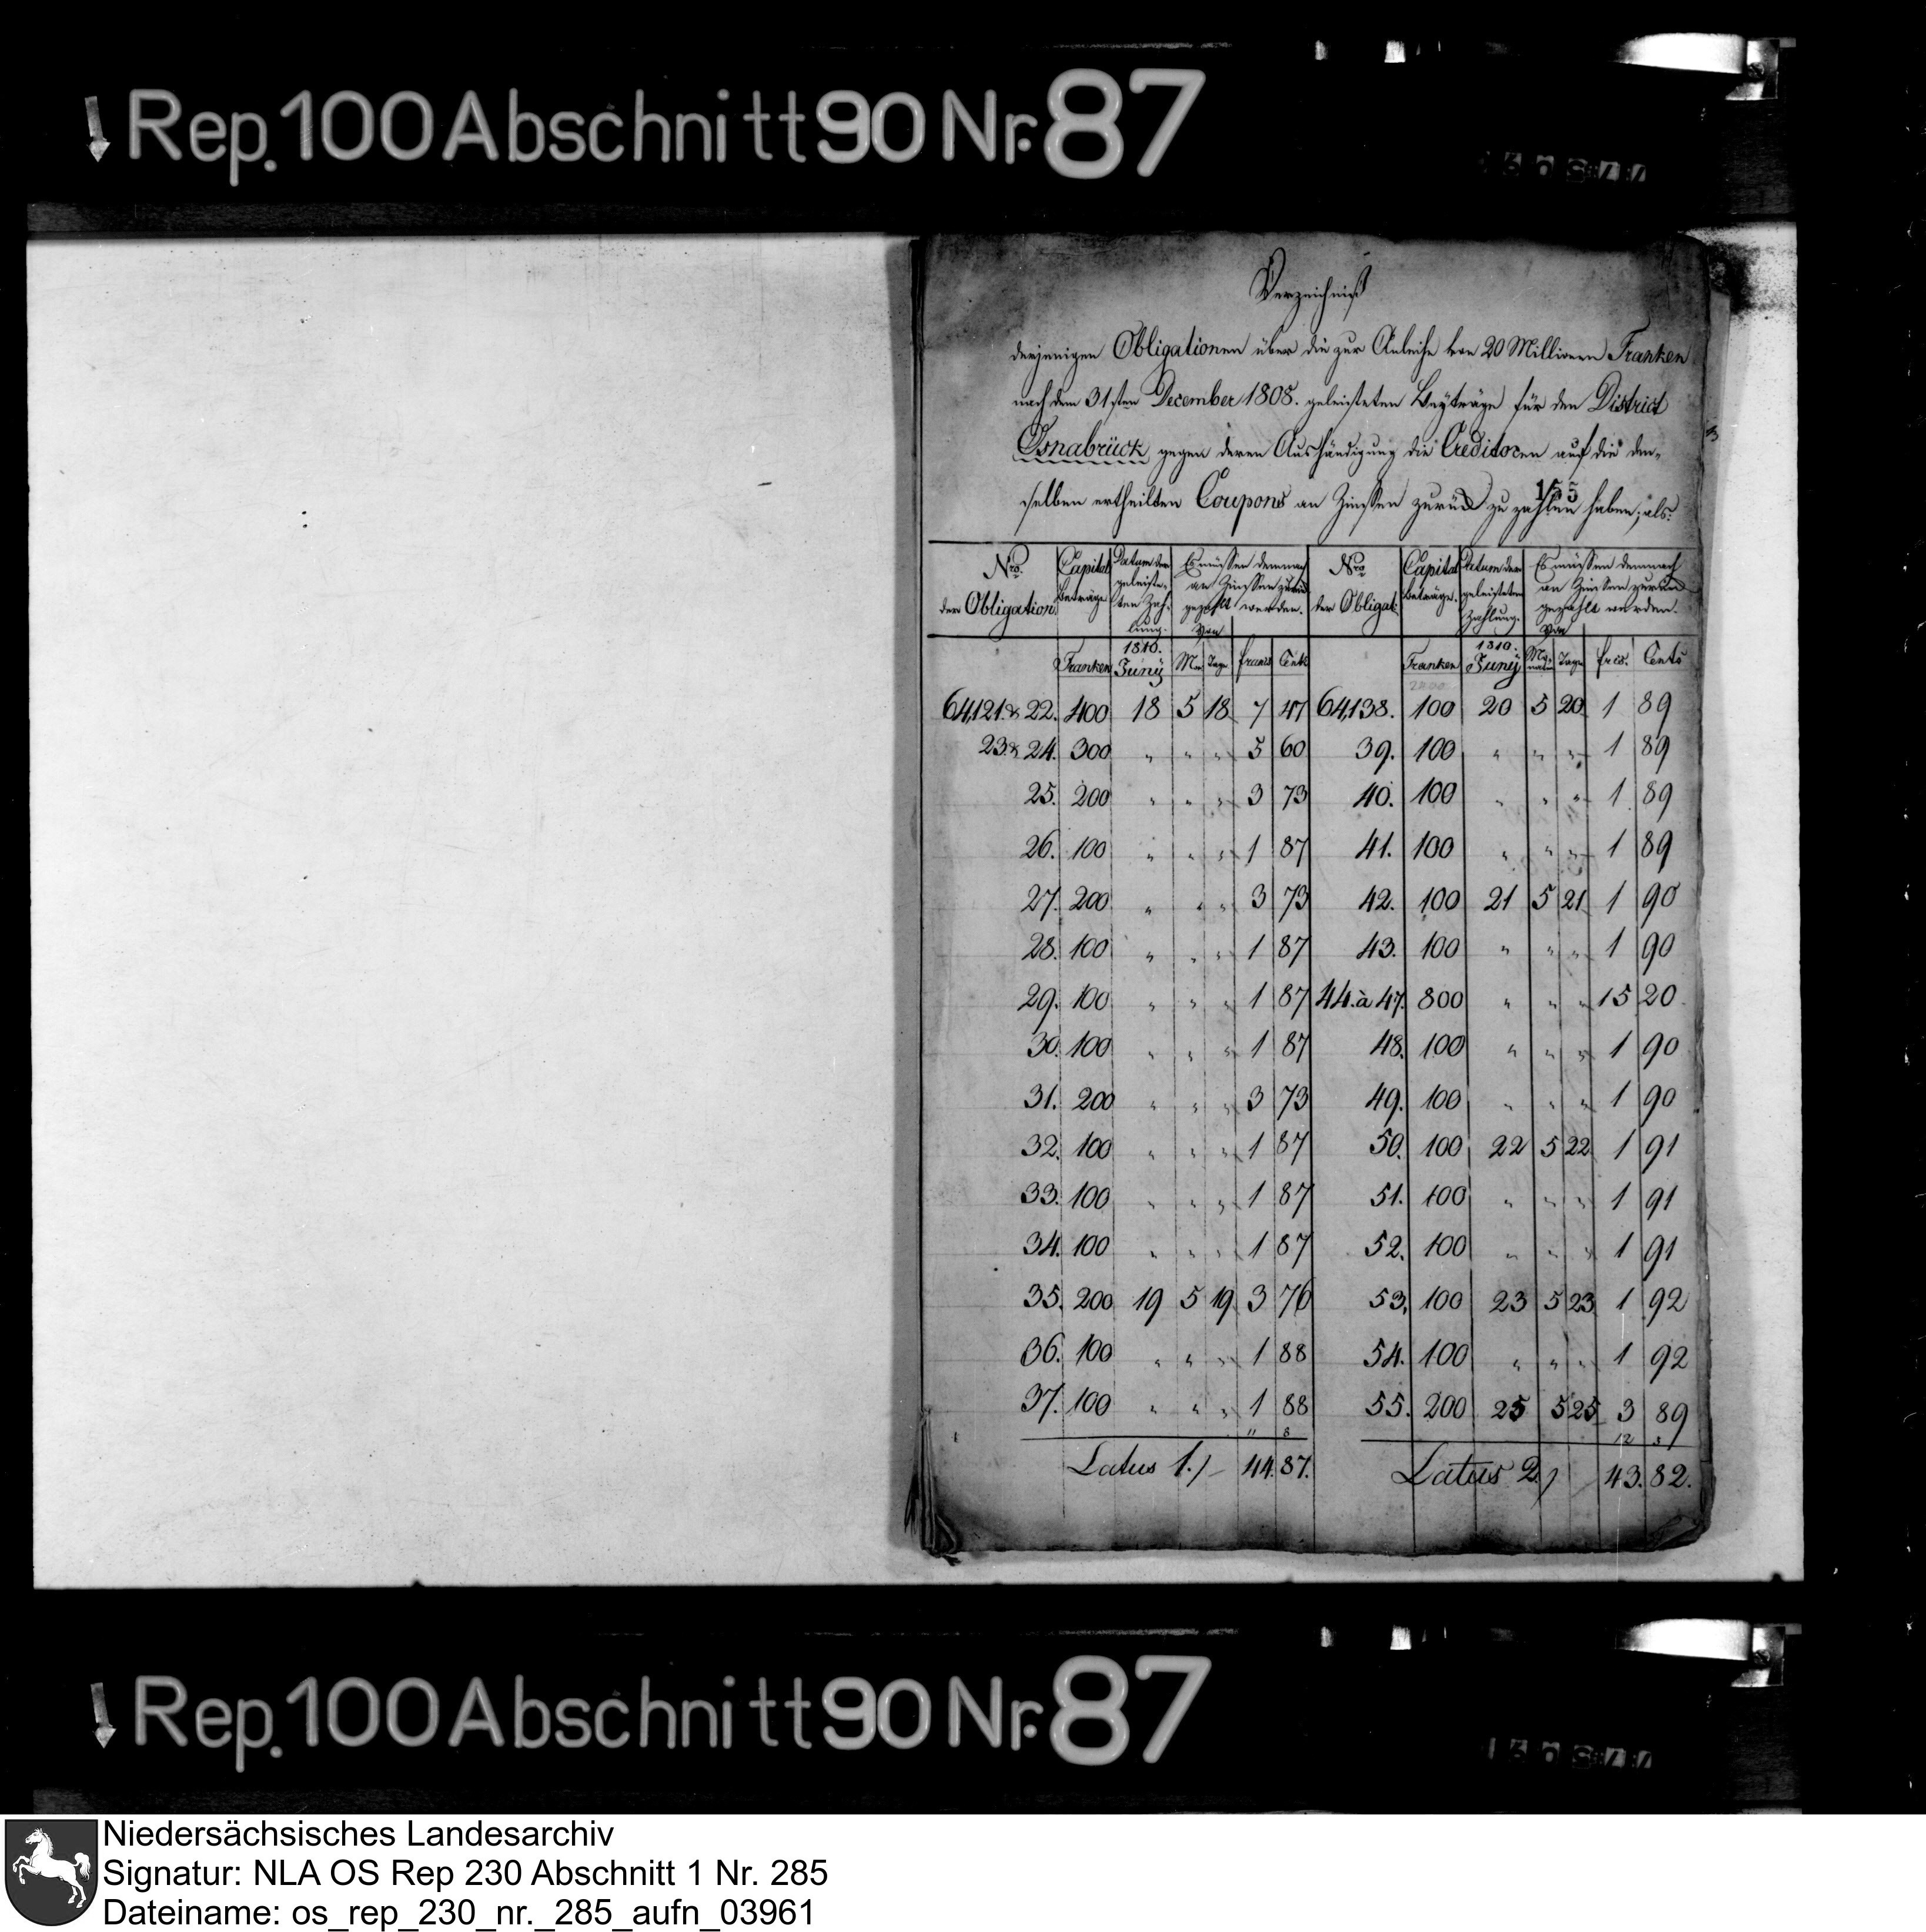 Rep. 100 Abschnitt 90 Nr. 87
Verzeichniß
derjenigen Obligationen über die zur Anleihe von 20 Millionen Franken
nach dem 31sten December 1808. geleisteten Beyträge für den District
Osnabrück gegen deren Aushändigung die Creditoren auf die den-
selben ertheilten Coupons an Zinssen zurück zu zahlen haben; als:
155
Nro. der Obligation. Capital beträge Datum der geleiste-ten Zah-lung. Es müssen demnach an Zinssen zurück gezahlt werden. Von Nro der Obligat: Capital beträge. Datum der geleisteten Zahlung. Es müssen demnach an Zinssen zurück gezahlt werden. Von
Franken 1810. Juny M. Tage francs Cents Franken 1810. Juny Mo-nate Tage frcs. Cents
2400
64,121. & 22. 400 18 5 18 7 47 64,138. 100 20 5 20 1 89
23 & 24. 300 " " " 5 60 39. 100 " " " 1 89
25. 200 " " " 3 73 40. 100 " " " 1 89
26. 100 " " " 1 87 41. 100 " " " 1 89
27. 200 " " " 3 73 42. 100 21 5 21 1 90
28. 100 " " " 1 87 43. 100 " " " 1 90
29. 100 " " " 1 87 44. à 47. 800 " " " 15 20
30. 100 " " " 1 87 48. 100 " " " 1 90
31. 200 " " " 3 73 49. 100 " " " 1 90
32. 100 " " " 1 87 50. 100 22 5 22 1 91
33. 100 " " " 1 87 51. 100 " " " 1 91
34. 100 " " " 1 87 52. 100 " " " 1 91
35. 200 19 5 19 3 76 53. 100 23 5 23 1 92
36. 100 " " " 1 88 54. 100 " " " 1 92
37. 100 " " " 1 88 55. 200 25 5 25 3 89
Latus 1.) 44. 87. Latus 2.) 43. 82.
Rep. 100 Abschnitt 90 Nr. 87
Niedersächsisches Landesarchiv
Signatur: NLA OS Rep 230 Abschnitt 1 Nr. 285
Dateiname: os_rep_230_nr._285_aufn_03961